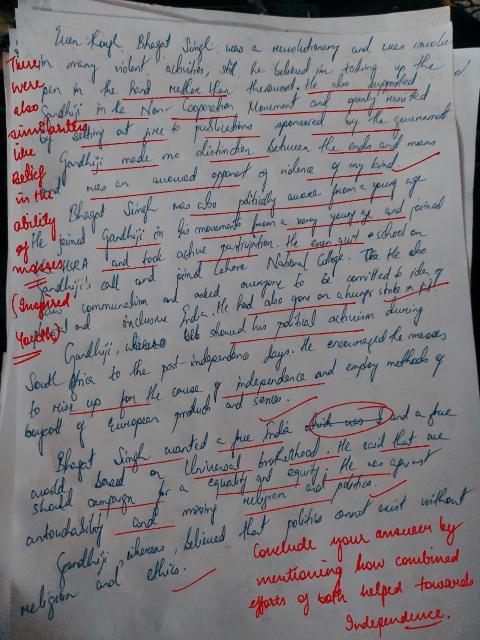 Even though Bhagat Singh was a revolutionary and was involve
in many violent activities, still he believed in taking up the
pen in the hand rather than the sword. He also supported
Gandhiji in the Non-Cooperation Movement and openly resisted
by setting out fire to publications sponsored by the government
Gandhiji made no distinction between the ends and means
and was an avowed opponent of violence of any kind.
Bhagat Singh was also politically aware from a young age
He joined Gandhiji in his movements from a very young age and joined
HSRA and took active participation. He even quit school on
Gandhiji's call and joined Lahore National College. He also
saw communalism and asked everyone to be comitted to idea of
and inclusive India. He had also gone on a hunger strike in
Gandhiji, whereas showed his political activism during
South Africa to the post-independence days. He encouraged the masses
to rise up for the cause of independence and employ methods of
boycott of European products and
Bhagat Singh wanted a free India and a free
world based on Universal brotherhood. He said that we
should campaign for a equality and equity. He was against
untouchability and mixing religion and politics.
Gandhiji, whereas, believed that politics cannot exist without
religion and ethics.
There
were
also
similarities
like
belief
in the
ability
of
masses
(Inspired
Youth)
Conclude your answer by
mentioning how combined
efforts of both helped towards
Independence.